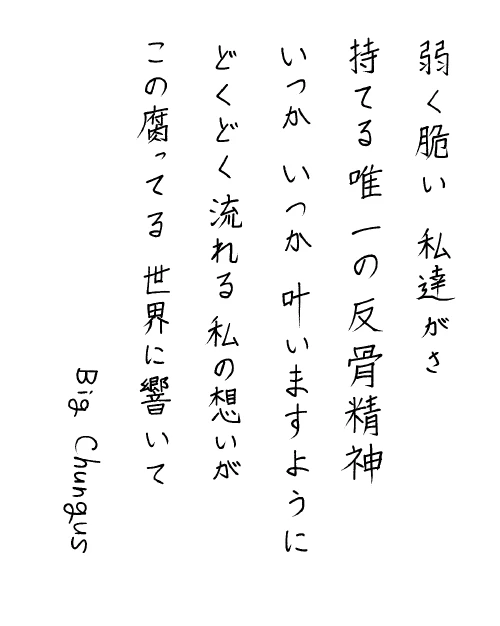 弱く脆い 私達がさ
持てる唯一の反骨精神
いつか いつか 叶いますように
どくどく流れる私の想いが
この腐ってる世界に響いて
Big Chungus